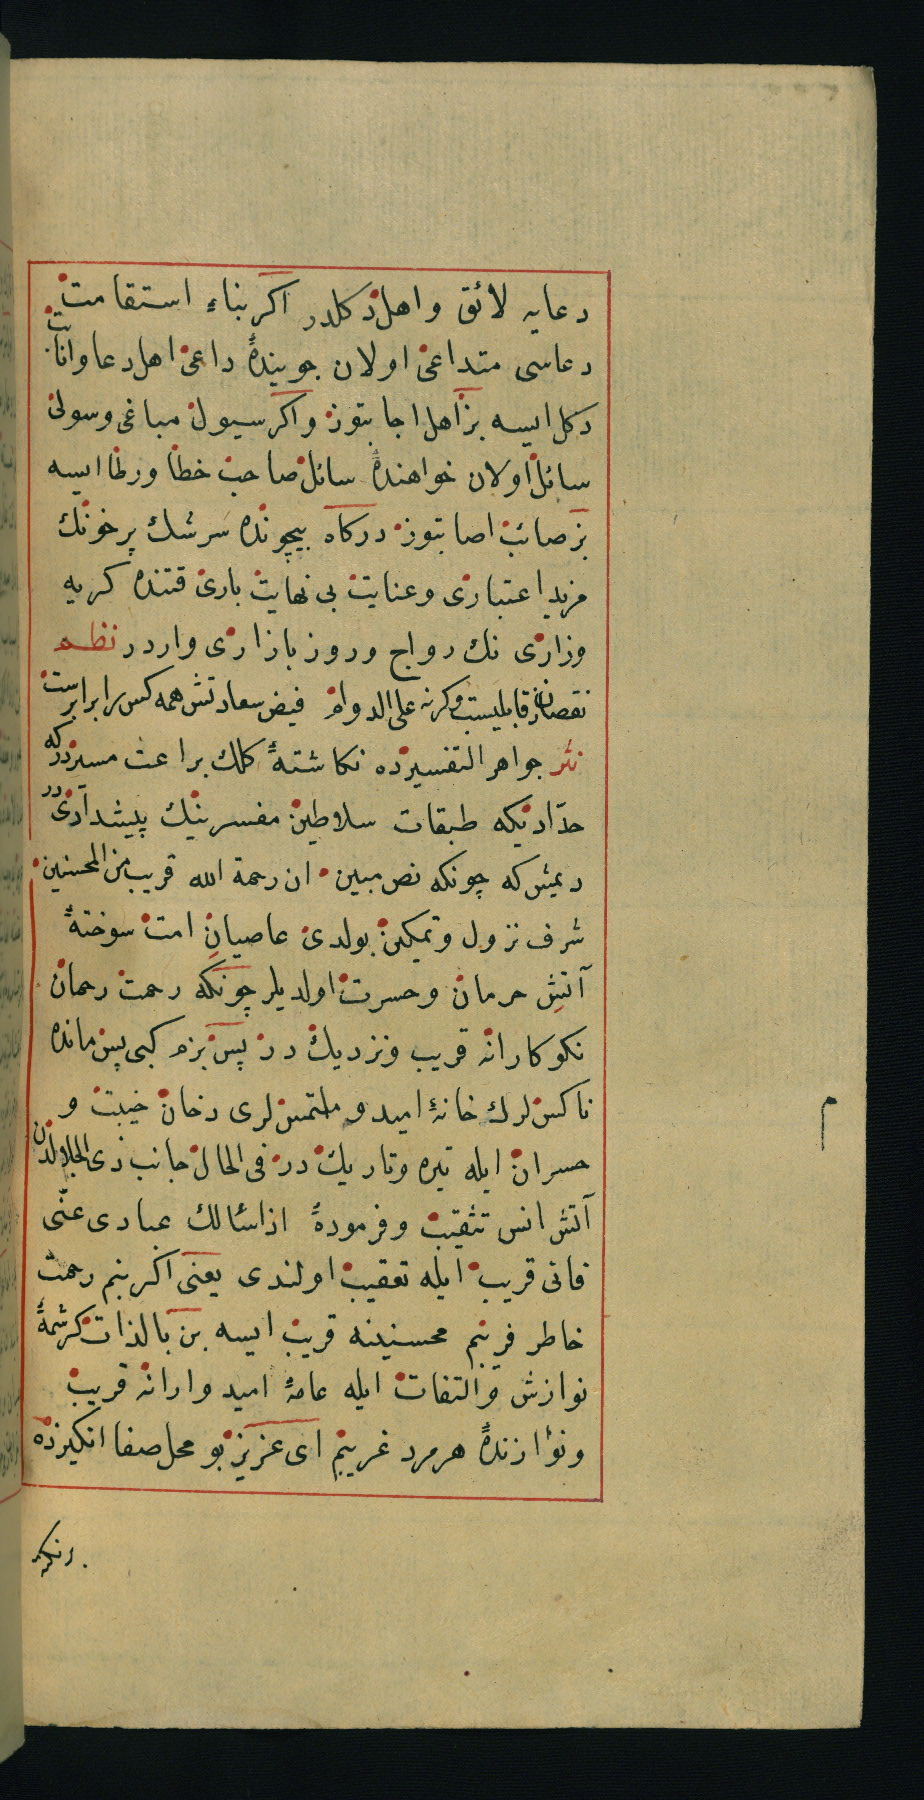 دعایه لائق و اهل دكلدر اكر بناء استقامت
دعاسی متداعی اولان جوینده داعی اهل دعا و انابت
دكل ایسه بز اهل اجابتوز و اكر سیول مباغی و سولی
سائل اولان خواهنده سائل صاحب خطا و رطا ایسه
بز صائب اصابتوز دركاه بیچونده سرشك پرخونك
مزید اعتباری و عنایت بی نهایت باری قتنده كریه
وزاری نك رواج و روز بازاری واردر نظم
نقصان ز قابلیست وكرنه علی الدوام فیض سعادتش همه كس را برابرست
نثر جواهر التفسیرده نكاشتهٔ كلك براعت مسیردر كه
حدّادیكه طبقات سلاطین مفسرینك پیشدادیدر
دیمش كه چونكه نص مبین ان رحمة الله قریب من المحسنین
شرف نزول و تمكین بولدی عاصیان امت سوختهٔ
آتش حرمان و حسرت اولدیلر چونكه رحمت رحمان
نكوكارانه قریب و نزدیك در پس بزم كبی پس مانده
ناكس لرك خانهٔ امید و ملتمس لری دخان خیبت و
حسران ایله تیره و تاریك در فی الحال جانب ذی الجلالدن
آتش انس تثقیب و فرمودهٔ اذا سالك عبادی عنّی
فانی قریب ایله تعقیب اولندی یعنی اكر بنم رحمت
خاطر فریبم محسنینه قریب ایسه بن بالذات كرشمهٔ
نوازش و التفات ایله عامهٔ امید وارانه قریب
و نوازندهٔ هر مرد غریبم ای عزیز بو محل صفا انكیزده
م